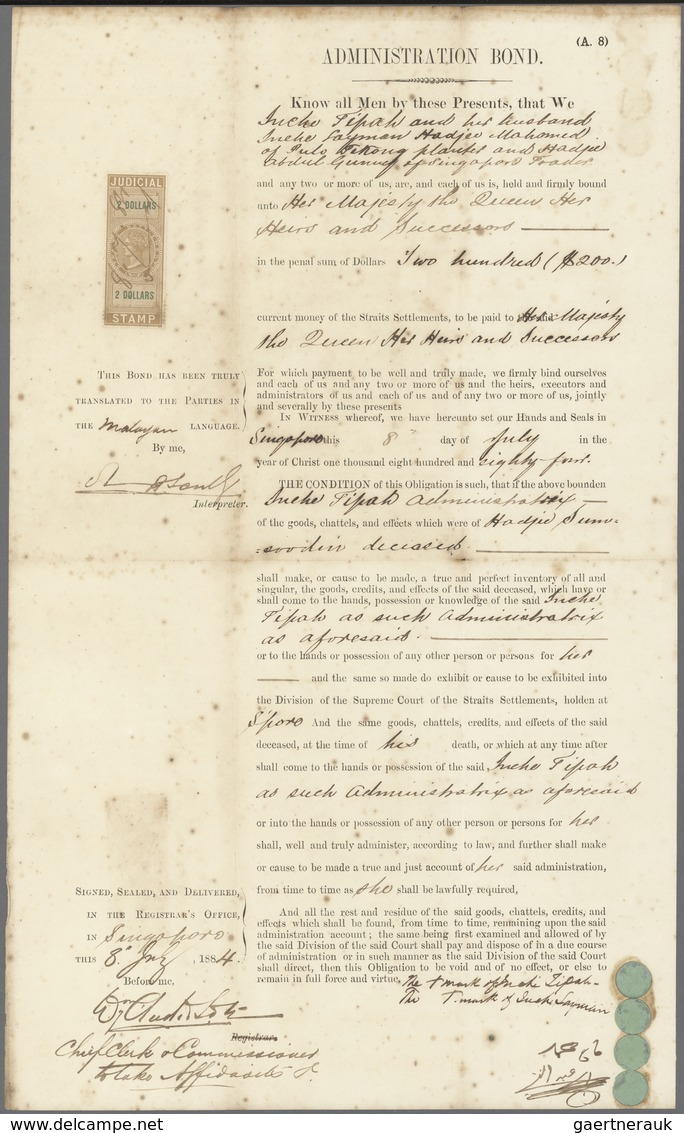 (A. 8)
ADMINISTRATION BOND.
Know all Men by these Presents, that We
Inche Tipah and her husband
Inche Layman Hadjee Mahomed
of Pulo Tekong planter and Hadjee
Abdul Gunny of Singapore Trader
and any two or more of us, are, and each of us is, held and firmly bound
unto Her Majesty the Queen Her
Heirs and Successors
in the penal sum of Dollars Two hundred ($200.)
JUDICIAL
2 DOLLARS
2 DOLLARS
STAMP
current money of the Straits Settlements, to be paid to Her Majesty
the Queen Her Heirs and Successors
For which payment to be well and truly made, we firmly bind ourselves
and each of us and any two or more of us and the heirs, executors and
administrators of us and each of us and of any two or more of us, jointly
and severally by these presents
In Witness whereof, we have hereunto set our Hands and Seals in
Singapore this 8th day of July in the
year of Christ one thousand eight hundred and eighty four.
This Bond has been truly
translated to the Parties in
the Malayan language.
By me,
Interpreter.
THE CONDITION of this Obligation is such, that if the above bounden
Inche Tipah Administratrix
of the goods, chattels, and effects which were of Hadjee Sum=
=soodin deceased.
shall make, or cause to be made, a true and perfect inventory of all and
singular, the goods, credits, and effects of the said deceased, which have or
shall come to the hands, possession or knowledge of the said Inche
Tipah as such Administratrix
as aforesaid.
or to the hands or possession of any other person or persons for her
and the same so made do exhibit or cause to be exhibited into
the Division of the Supreme Court of the Straits Settlements, holden at
S'pore And the same goods, chattels, credits, and effects of the said
deceased, at the time of his death, or which at any time after
shall come to the hands or possession of the said, Inche Tipah
as such Administratrix as aforesaid
or into the hands or possession of any other person or persons for her
shall, well and truly administer, according to law, and further shall make
or cause to be made a true and just account of her said administration,
from time to time as she shall be lawfully required,
And all the rest and residue of the said goods, chattels, credits, and
effects which shall be found, from time to time, remining upon the said
administration account; the same being first examined and allowed of by
the said Division of the said Court shall pay and dispose of in a due course
of administration or in such manner as the said Division of the said Court
shall direct, then this Obligation to be void and of no effect, or else to
remain in full force and virtue.
The + mark of Inche Tipah
The + mark of Inche Layman
Signed, Sealed, and Delivered,
in the Registrar's Office,
in Singapore
this 8th July, 1884.
Before me,
Registrar.
Chief Clerk & Commissioner
to take Affidavits
gaertnerauk